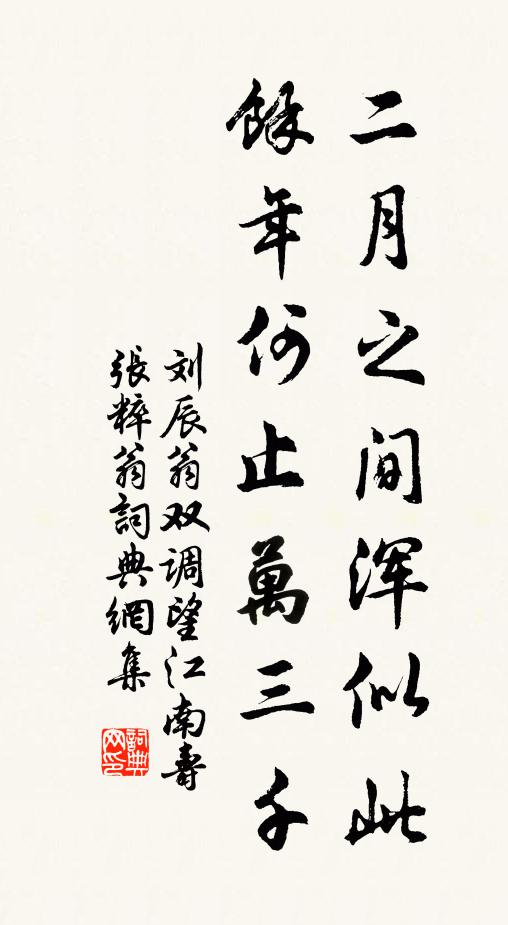 二月之间浑似此
餘年何止萬三千
刘辰翁双调望江南壽
張粹翁詞典網集
詞典网印